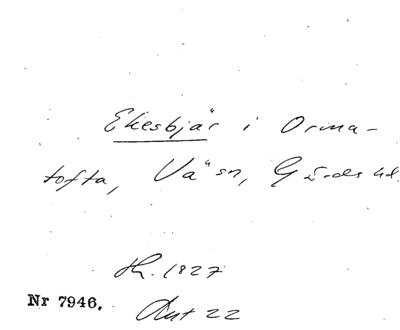 Ekesbjär i Orma-
tofta, Vä sn, Gärds hd.
Hh. 1827
Nr 7946. Akt 22